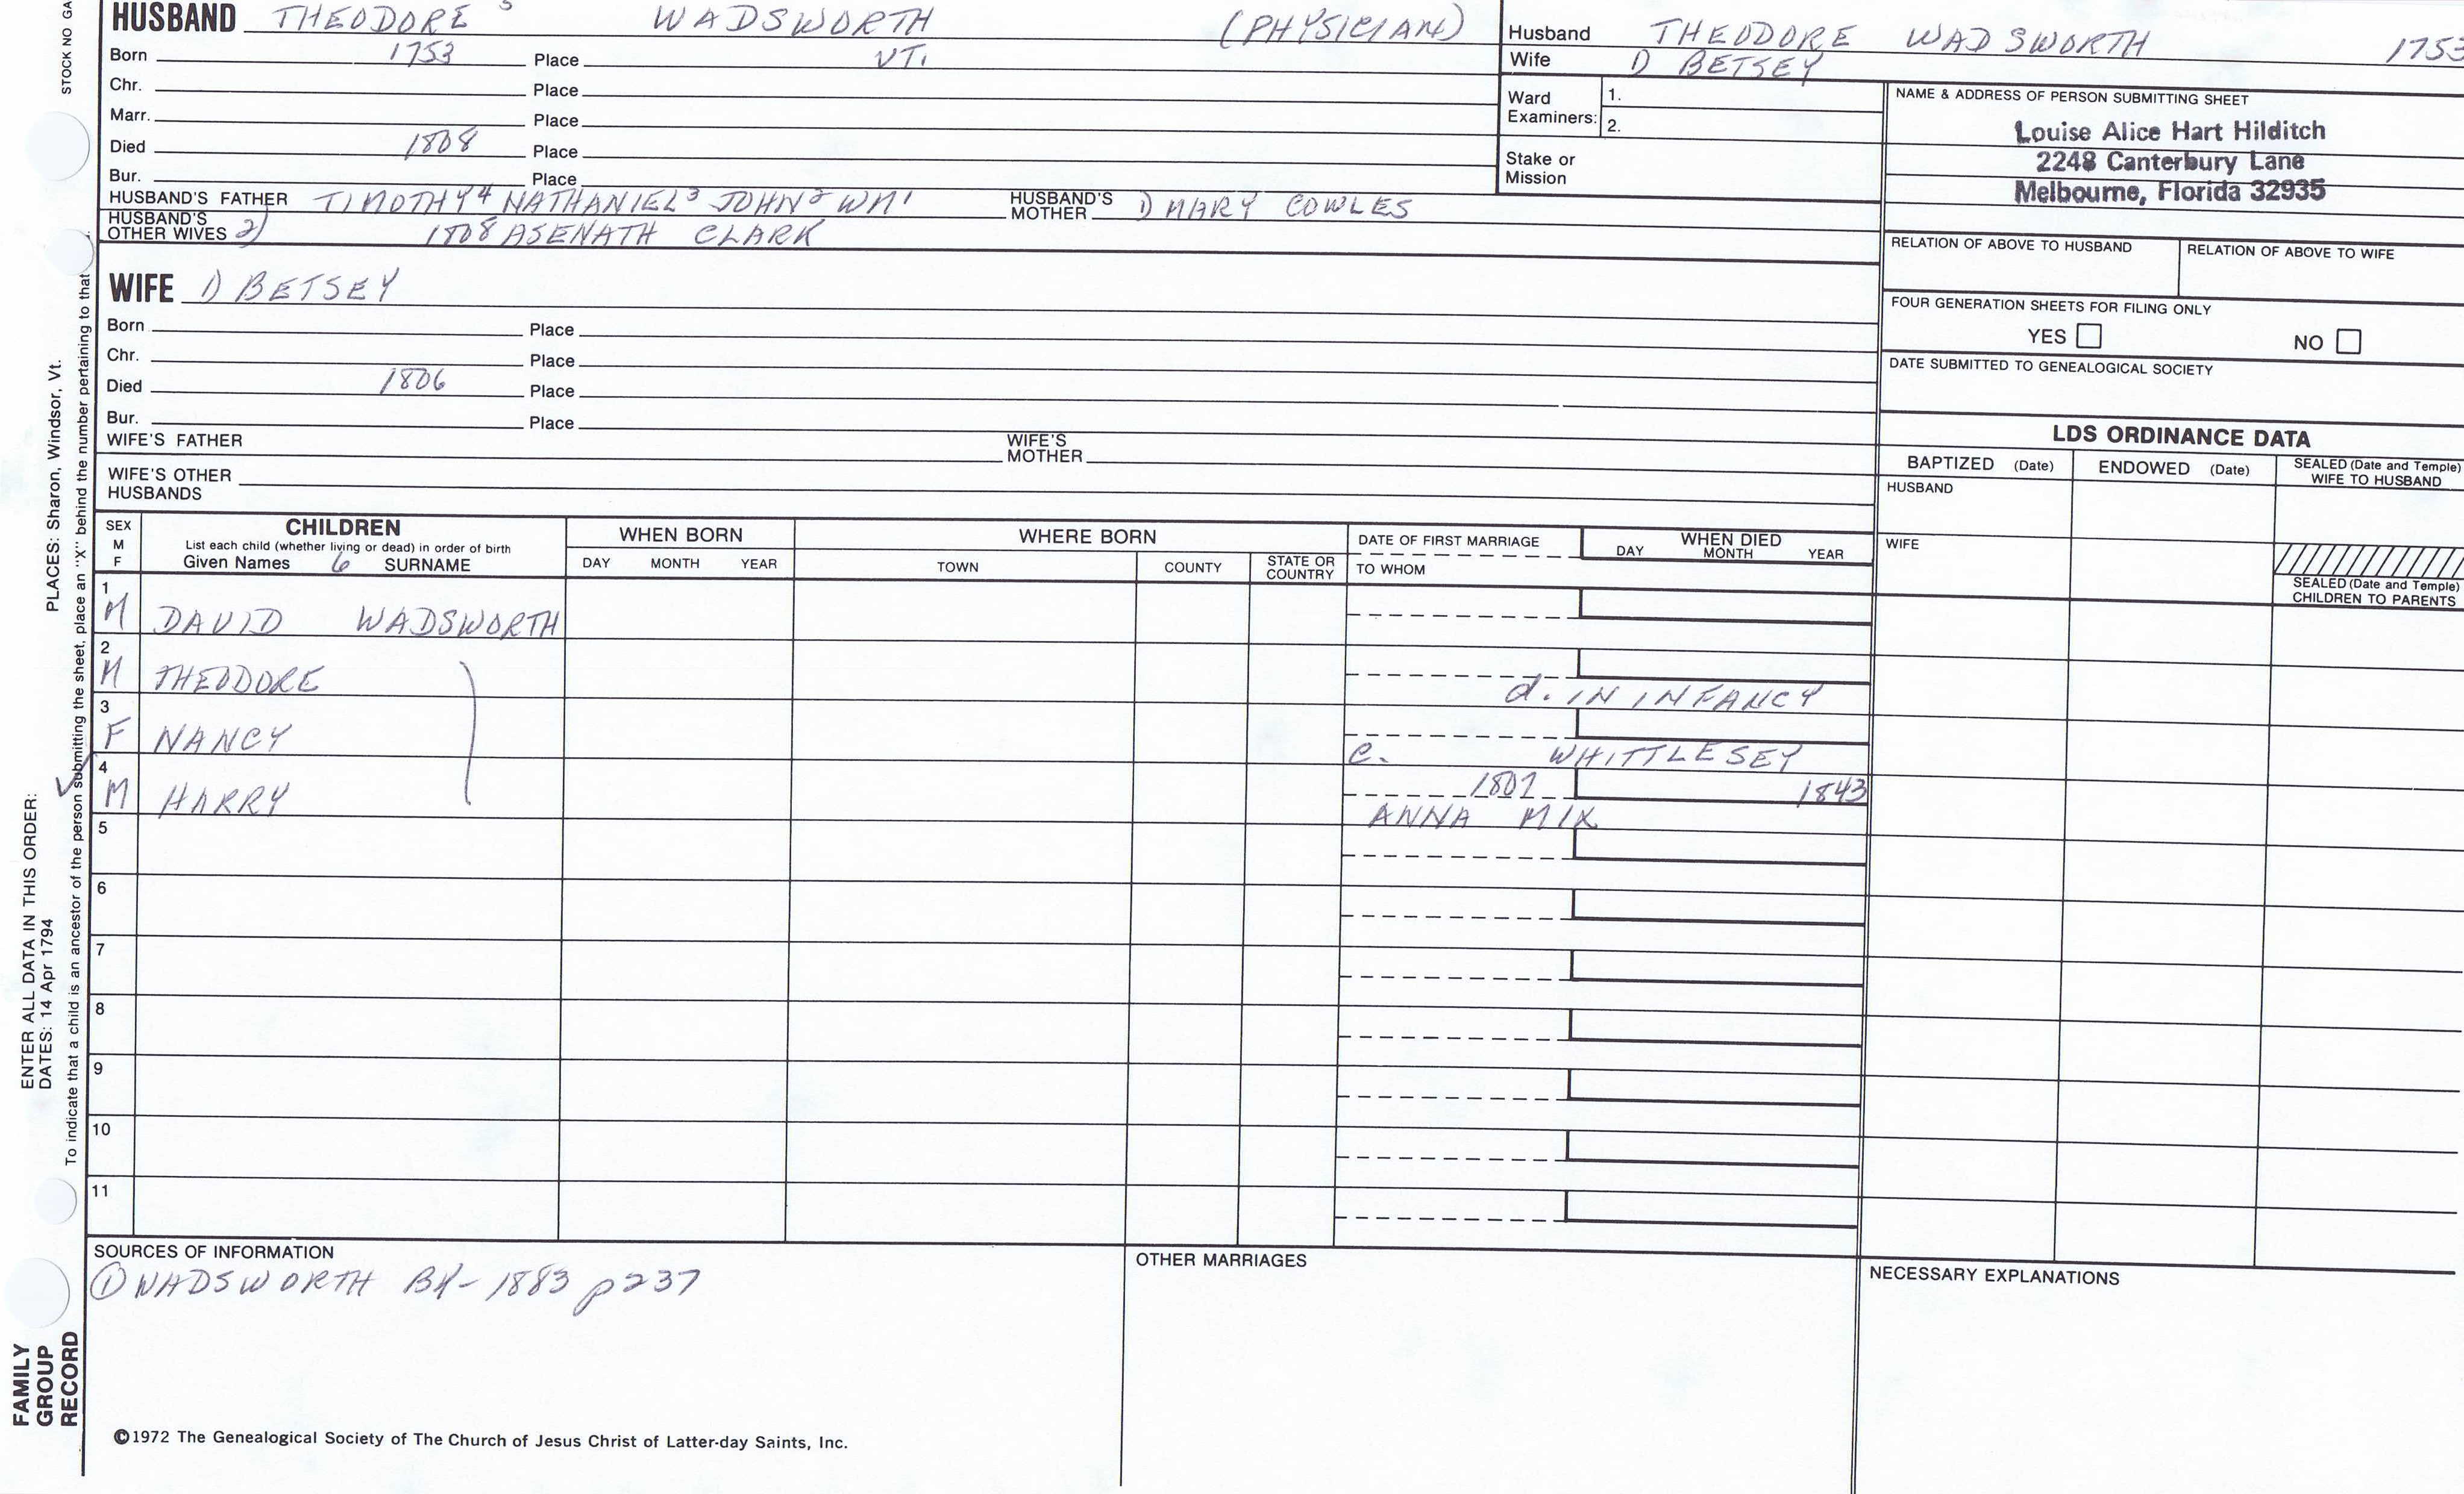 HUSBAND THEODORE 5 WADSWORTH (PHYSICIAN)
Born 1753 Place VT.
Chr. Place
Marr. Place
Died 1808 Place
Bur. Place
HUSBAND'S FATHER TIMOTHY4 NATHANIEL3 JOHN2 WM1 HUSBAND'S MOTHER 1) MARY COWLES
HUSBAND'S OTHER WIVES 2) 1808 ASENATH CLARK
WIFE 1) BETSEY
Born Place
Chr. Place
Died 1806 Place
Bur. Place
WIFE'S FATHER WIFE'S MOTHER
WIFE'S OTHER HUSBANDS
Husband THEODORE WADSWORTH 1753
Wife 1) BETSEY
Ward Examiners: 1.
2.
Stake or Mission
NAME & ADDRESS OF PERSON SUBMITTING SHEET
Louise Alice Hart Hilditch
2248 Canterbury Lane
Melbourne, Florida 32935
RELATION OF ABOVE TO HUSBAND RELATION OF ABOVE TO WIFE
FOUR GENERATION SHEETS FOR FILING ONLY
YES NO
DATE SUBMITTED TO GENEALOGICAL SOCIETY
LDS ORDINANCE DATA
BAPTIZED (Date) ENDOWED (Date) SEALED (Date and Temple) WIFE TO HUSBAND
HUSBAND
WIFE
SEALED (Date and Temple) CHILDREN TO PARENTS
SEX M F
CHILDREN
List each child (whether living or dead) in order of birth
Given Names 6 SURNAME
WHEN BORN
DAY MONTH YEAR
WHERE BORN
TOWN COUNTY STATE OR COUNTRY
DATE OF FIRST MARRIAGE
TO WHOM
WHEN DIED
DAY MONTH YEAR
1 M DAVID WADSWORTH
2 M THEODORE
d. IN INFANCY
3 F NANCY
C. WHITTLESEY
4 M HARRY 1807 1843
ANNA MIX
5
6
7
8
9
10
11
SOURCES OF INFORMATION
① WADSWORTH BK- 1883 p237
OTHER MARRIAGES
NECESSARY EXPLANATIONS
©1972 The Genealogical Society of The Church of Jesus Christ of Latter-day Saints, Inc.
STOCK NO GA
PLACES: Sharon, Windsor, Vt.
ENTER ALL DATA IN THIS ORDER:
DATES: 14 Apr 1794
To indicate that a child is an ancestor of the person submitting the sheet, place an "X" behind the number pertaining to that
FAMILY
GROUP
RECORD